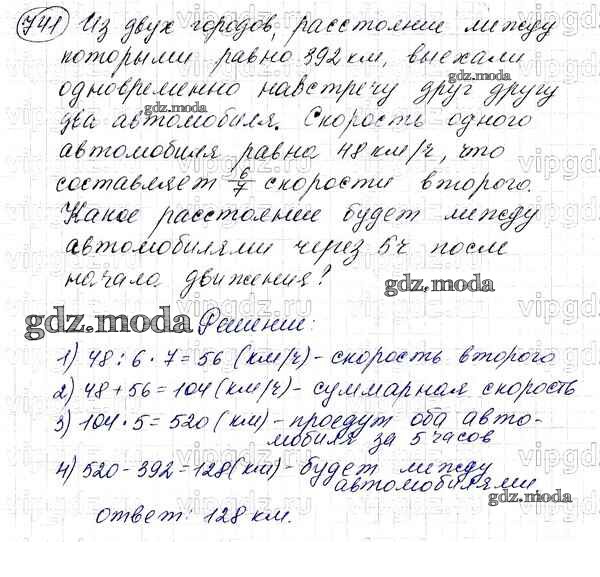 741 Из двух городов, расстояние между
которыми равно 392 км, выехали
одновременно навстречу друг другу
два автомобиля. Скорость одного
автомобиля равна 48 км/ч, что
составляет 6/7 скорости второго.
Какое расстояние будет между
автомобилями через 5ч после
начала движения?
gdz.moda
gdz.moda
gdz.moda
gdz.moda Решение:
1) 48 : 6 · 7 = 56 (км/ч) - скорость второго
2) 48 + 56 = 104 (км/ч) - суммарная скорость
3) 104 · 5 = 520 (км) - проедут оба авто-
мобиля за 5 часов
4) 520 - 392 = 128 (км) - будет между
автомобилями
gdz.moda
Ответ: 128 км.